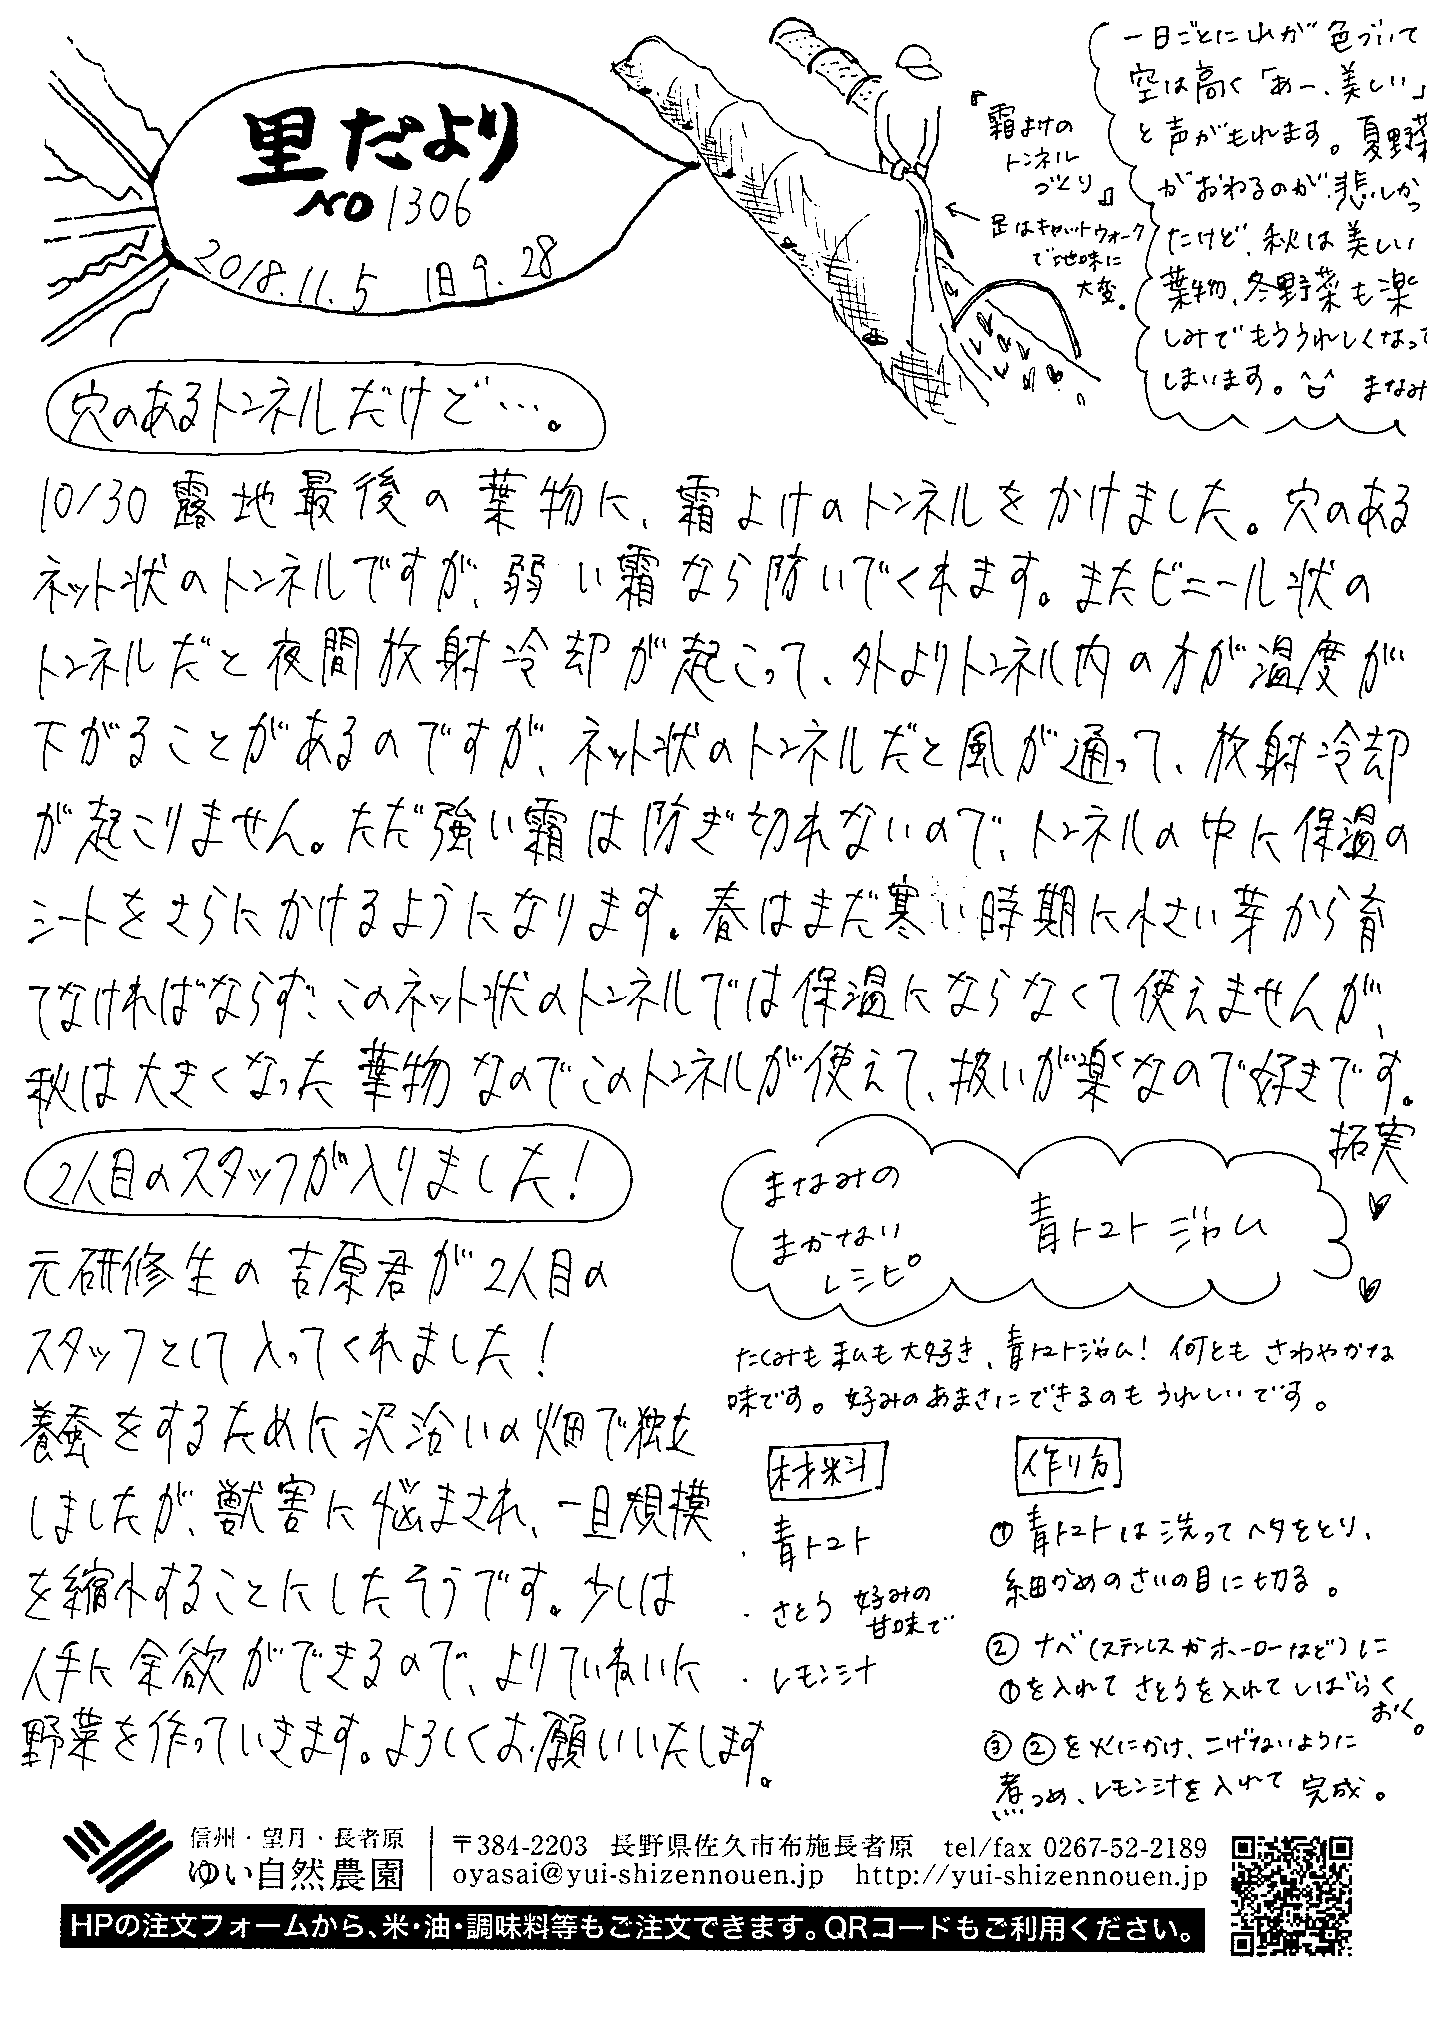 里だより
NO 1306
2018.11.5 旧9.28
『霜よけの
トンネル
づくり』
足はキャットウォーク
で地味に
大変。
一日ごとに山が色づいて
空は高く「あー、美しい」
と声がもれます。夏野菜
がおわるのが悲しかっ
たけど、秋は美しい
葉物、冬野菜も楽
しみでもううれしくなって
しまいます。 まなみ
穴のあるトンネルだけど…。
10/30 露地最後の葉物に、霜よけのトンネルをかけました。穴のある
ネット状のトンネルですが、弱い霜なら防いでくれます。またビニール状の
トンネルだと夜間放射冷却が起こって、外よりトンネル内の方が温度が
下がることがあるのですが、ネット状のトンネルだと風が通って、放射冷却
が起こりません。ただ強い霜は防ぎ切れないので、トンネルの中に保温の
シートをさらにかけるようになります。春はまだ寒い時期に小さい芽から育
てなければならず、このネット状のトンネルでは保温にならなくて使えませんが、
秋は大きくなった葉物なのでこのトンネルが使えて、扱いが楽なので好きです。
拓実
2人目のスタッフが入りました!
元研修生の吉原君が2人目の
スタッフとして入ってくれました!
養蚕をするために沢沿いの畑で独立
しましたが、獣害に悩まされ、一旦規模
を縮小することにしたそうです。少しは
人手に余欲ができるので、よりていねいに
野菜を作っていきます。よろしくお願いいたします。
まなみの
まかない
レシピ
青トマトジャム
たくみも私も大好き、青トマトジャム! 何ともさわやかな
味です。好みのあまさにできるのもうれしいです。
材料
・青トマト
・さとう 好みの
甘味で
・レモン汁
作り方
① 青トマトは洗ってヘタをとり、
細かめのさいの目に切る。
② ナベ(ステンレスかホーローなど)に
①を入れてさとうを入れてしばらく
おく。
③ ②を火にかけ、こげないように
煮つめ、レモン汁を入れて完成。
信州・望月・長者原
ゆい自然農園
〒384-2203 長野県佐久市布施長者原 tel/fax 0267-52-2189
oyasai@yui-shizennouen.jp http://yui-shizennouen.jp
HPの注文フォームから、米・油・調味料等もご注文できます。QRコードもご利用ください。